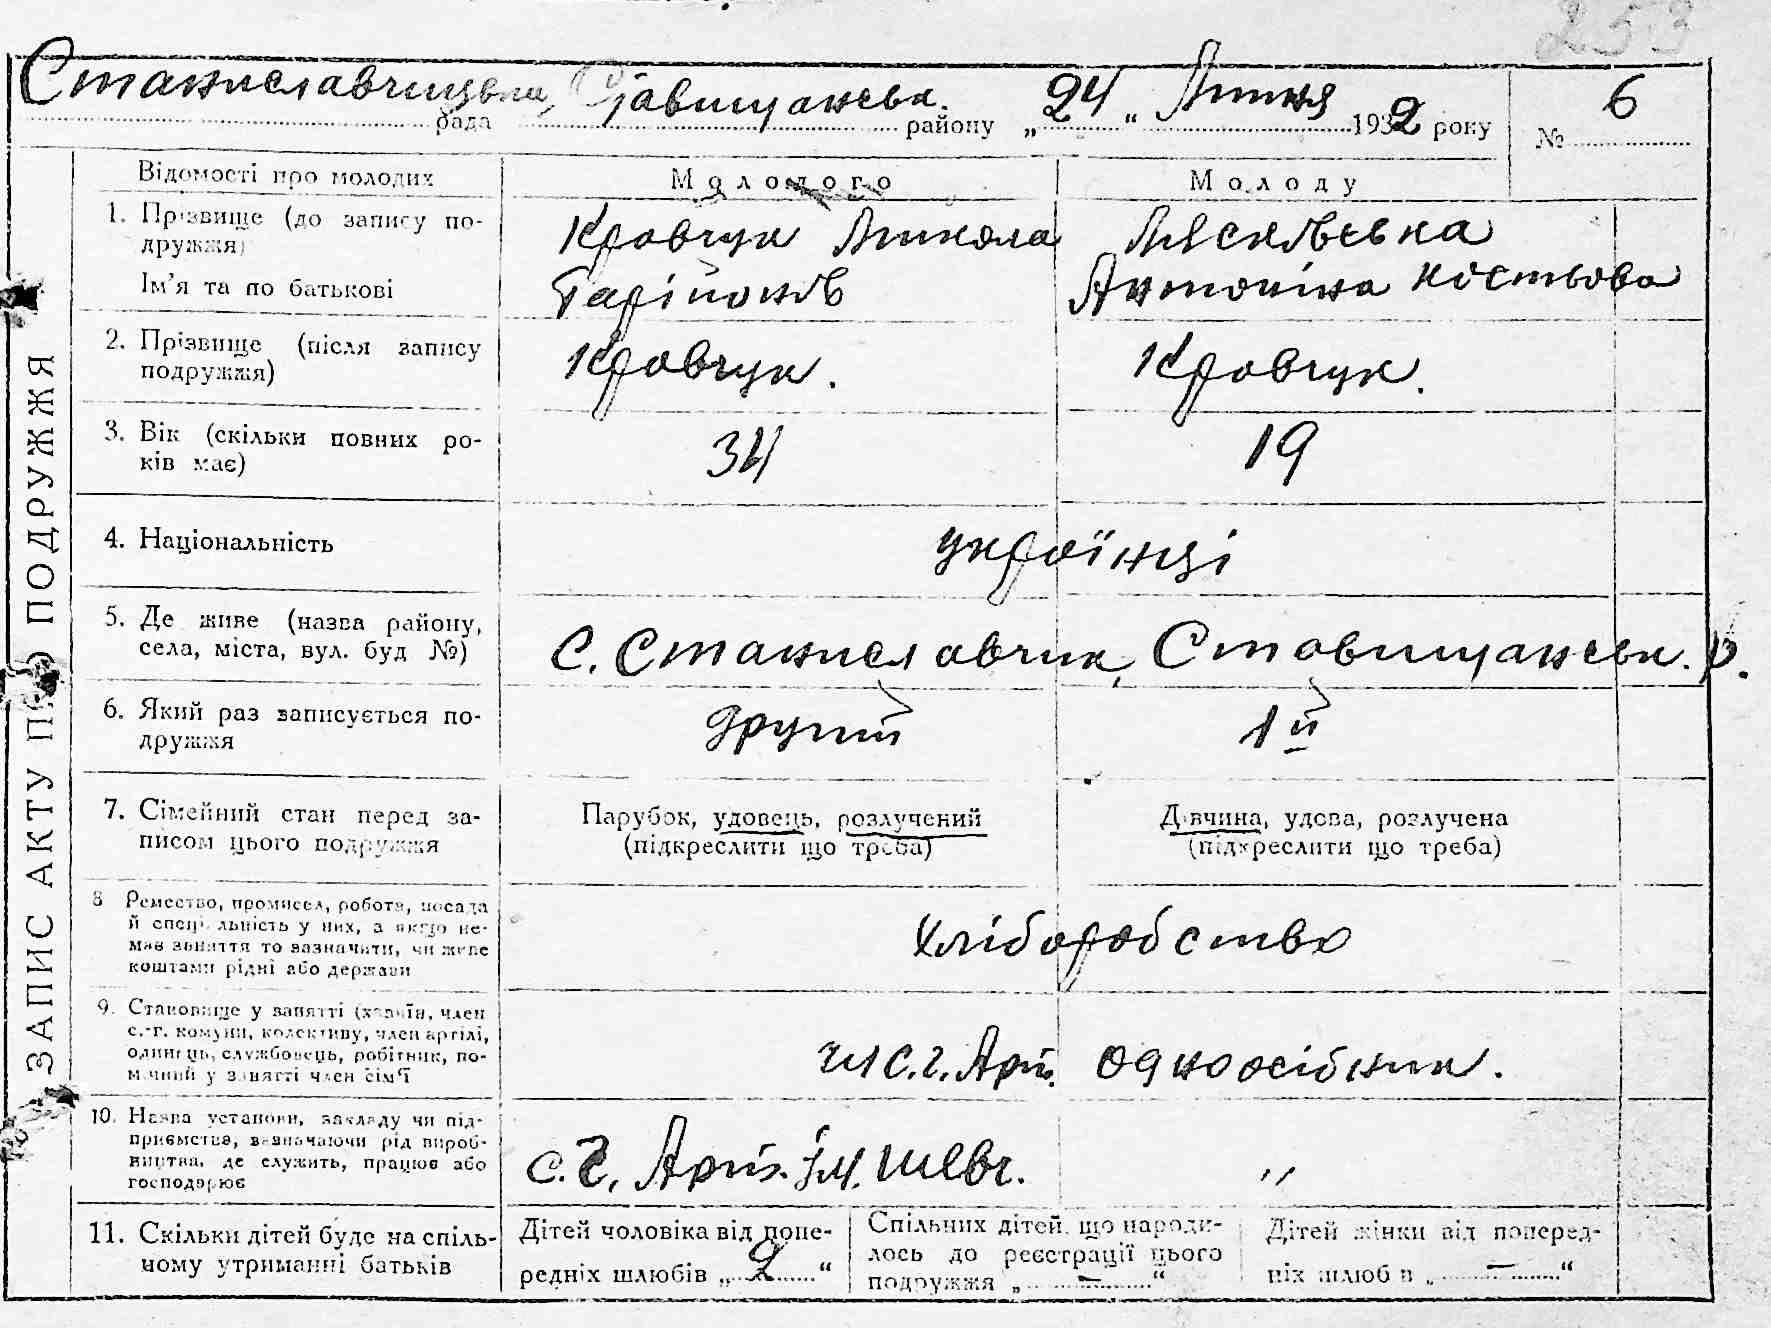 253
Станиславчицька рада, Ставищанськ. району „24“ Липня 1932 року № 6
ЗАПИС АКТУ ПРО ПОДРУЖЖЯ
Відомості про молодих
Молодого
Молоду
1. Прізвище (до запису по-
дружжя)
Ім'я та по батькові
Кровчук Микола
Мясківська
Антоніна Костьова
2. Прізвище (після запису
подружжя)
Кровчук.
Кровчук.
3. Вік (скільки повних ро-
ків має)
34
19
4. Національність
українці
5. Де живе (назва району,
села, міста, вул. буд №)
с. Станиславчик, Ставищанськ. р.
6. Який раз записується по-
дружжя
другий
1й
7. Сімейний стан перед за-
писом цього подружжя
Парубок, удовець, розлучений
(підкреслити що треба)
Дівчина, удова, розлучена
(підкреслити що треба)
8 Ремество, промисел, робота, посада
й спеціяльність у них, а якщо не-
має заняття то зазначити, чи живе
коштами рідні або держави
хліборобство
9. Становище у занятті (хазяїн, член
с.-г. комуни, колективу, член артілі,
одинець, службовець, робітник, по-
мічний у занятті член сім'ї
чл с.г. Арт. одноосібник.
10. Назва установи, закладу чи під-
приємства, зазначаючи рід вироб-
ництва, де служить, працює або
господарює
с.г. Арт. ім. Шевч.
"
11. Скільки дітей буде на спіль-
ному утриманні батьків
Дітей чоловіка від попе-
редніх шлюбів „2“
Спільних дітей, що народи-
лось до реєстрації цього
подружжя „–“
Дітей жінки від поперед-
ніх шлюбів „–“